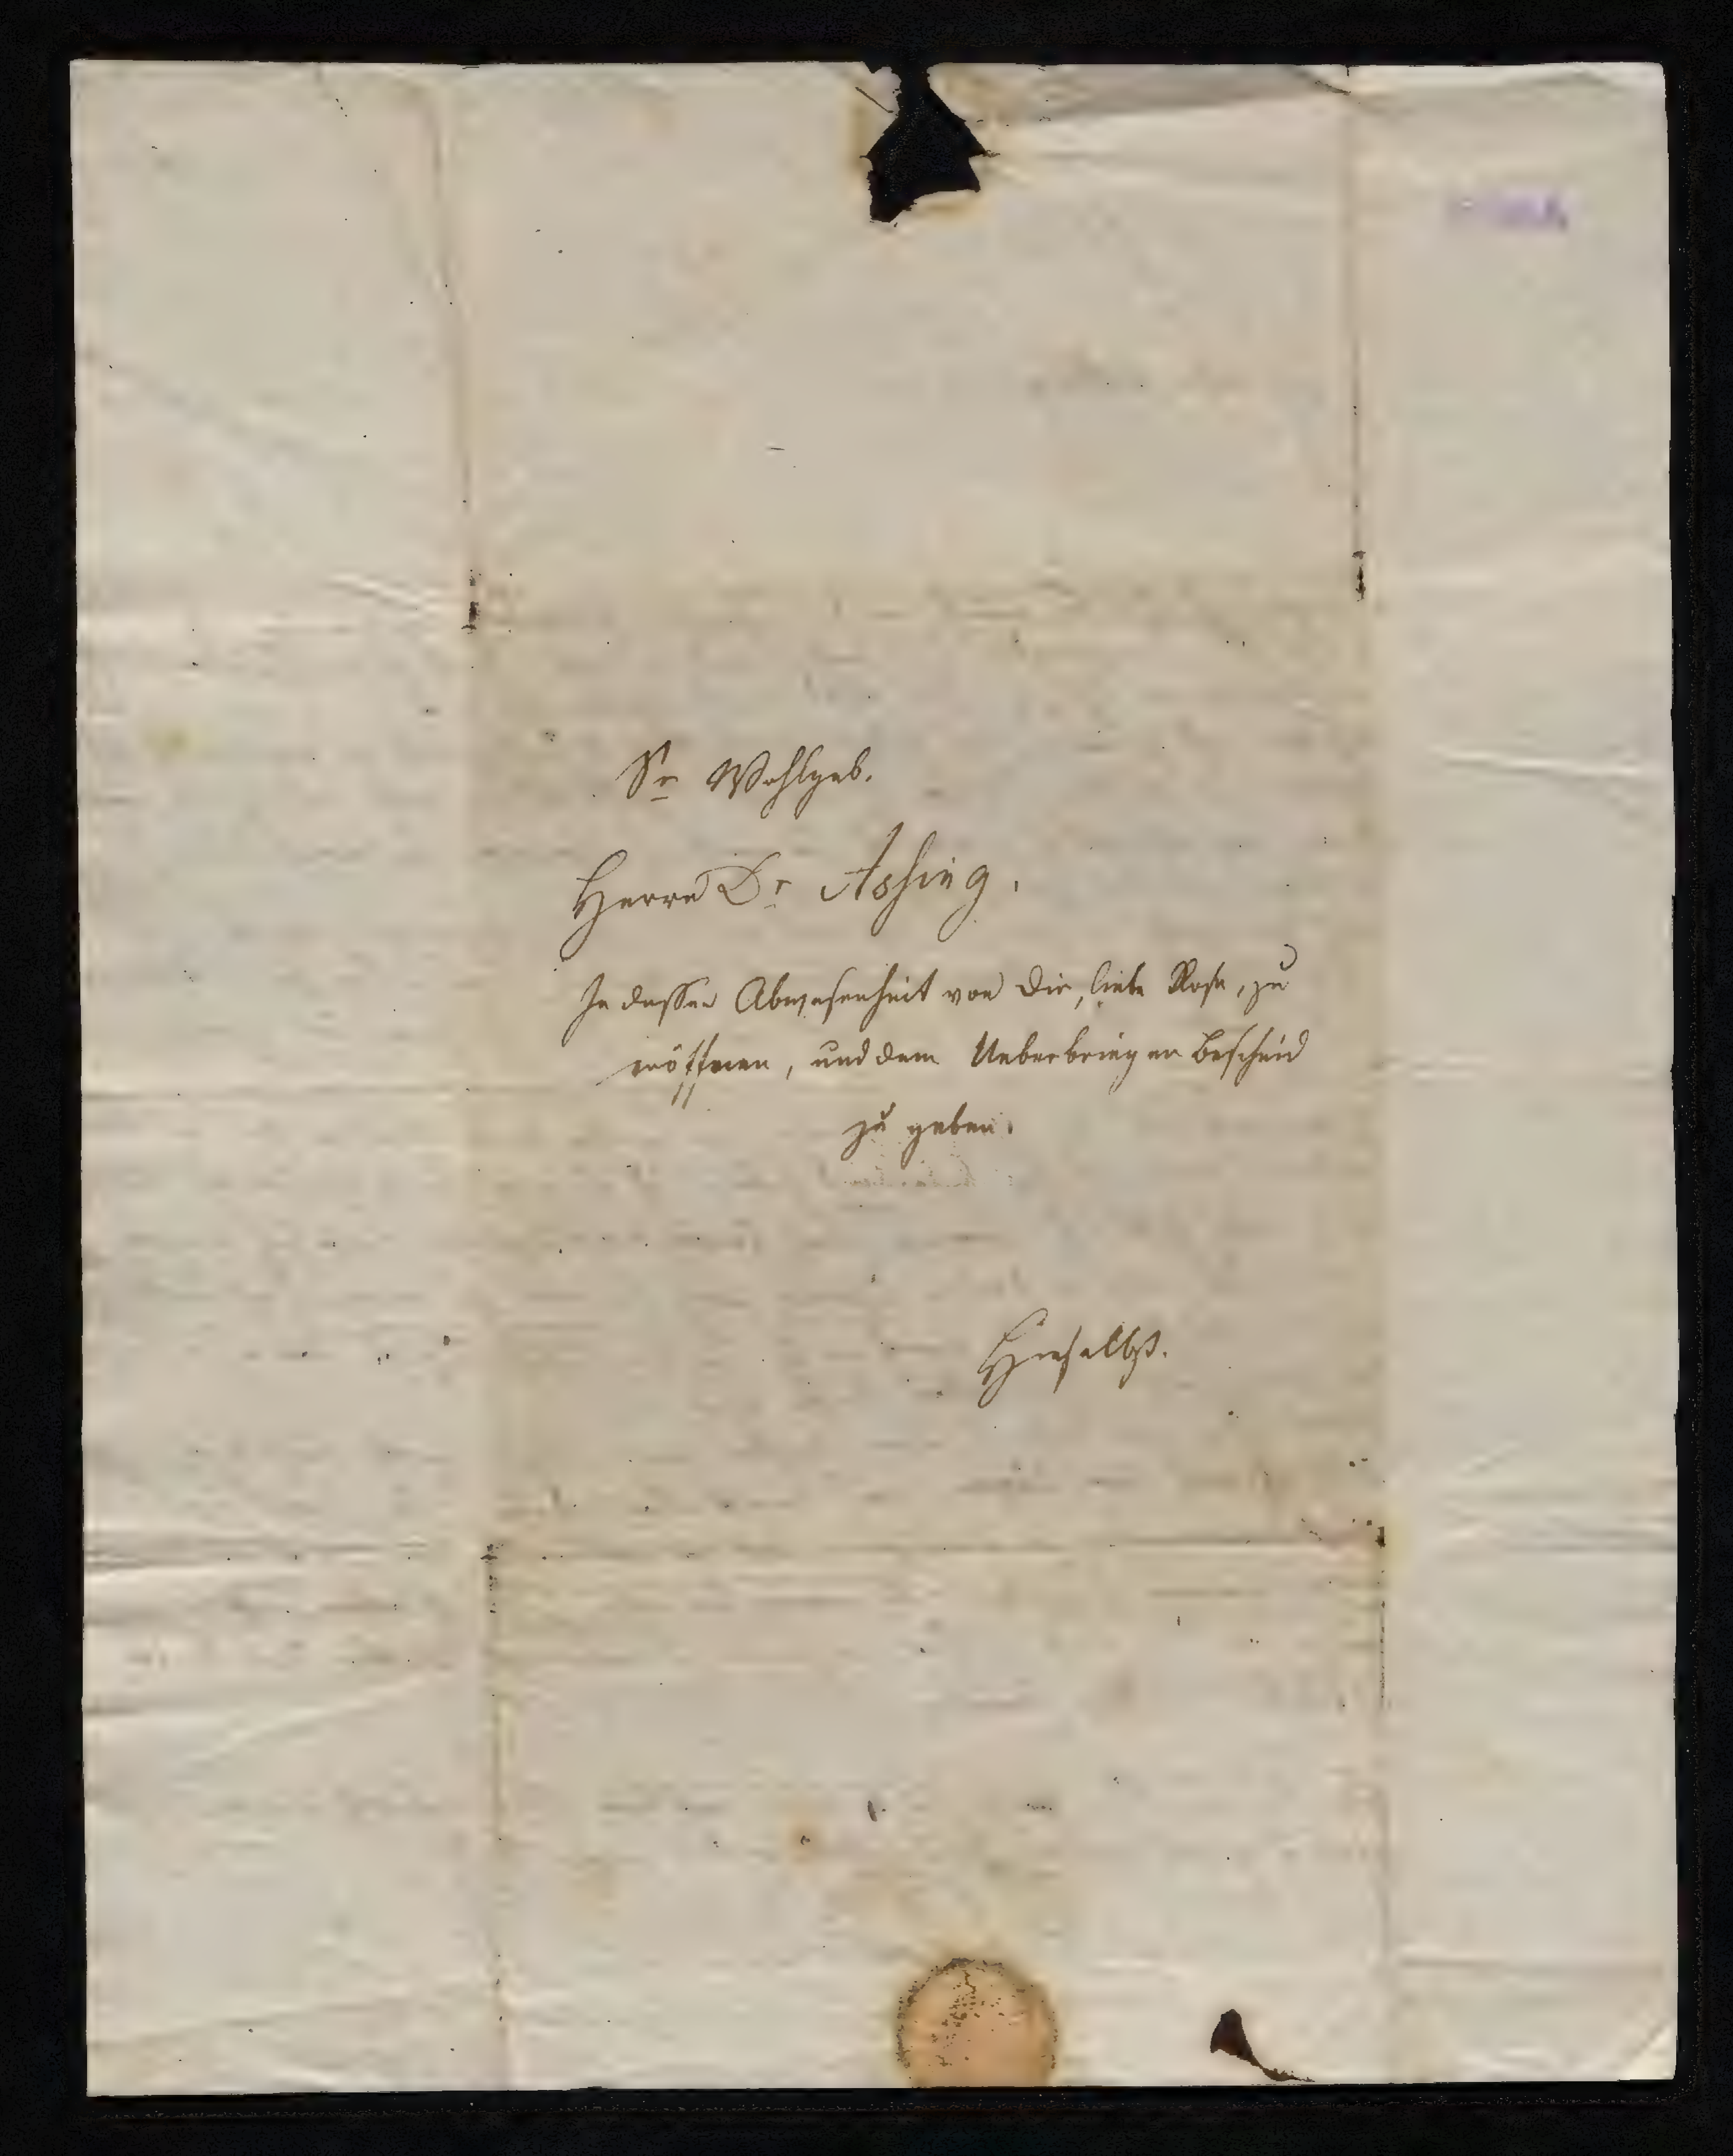 Sr Wohlgeb.
Herrn Dr Assing.
In dessen Abwesenheit von Dir, liebe Rosa, zu
eröffnen, und dem Ueberbringer Bescheid
zu geben.
Hieselbst.